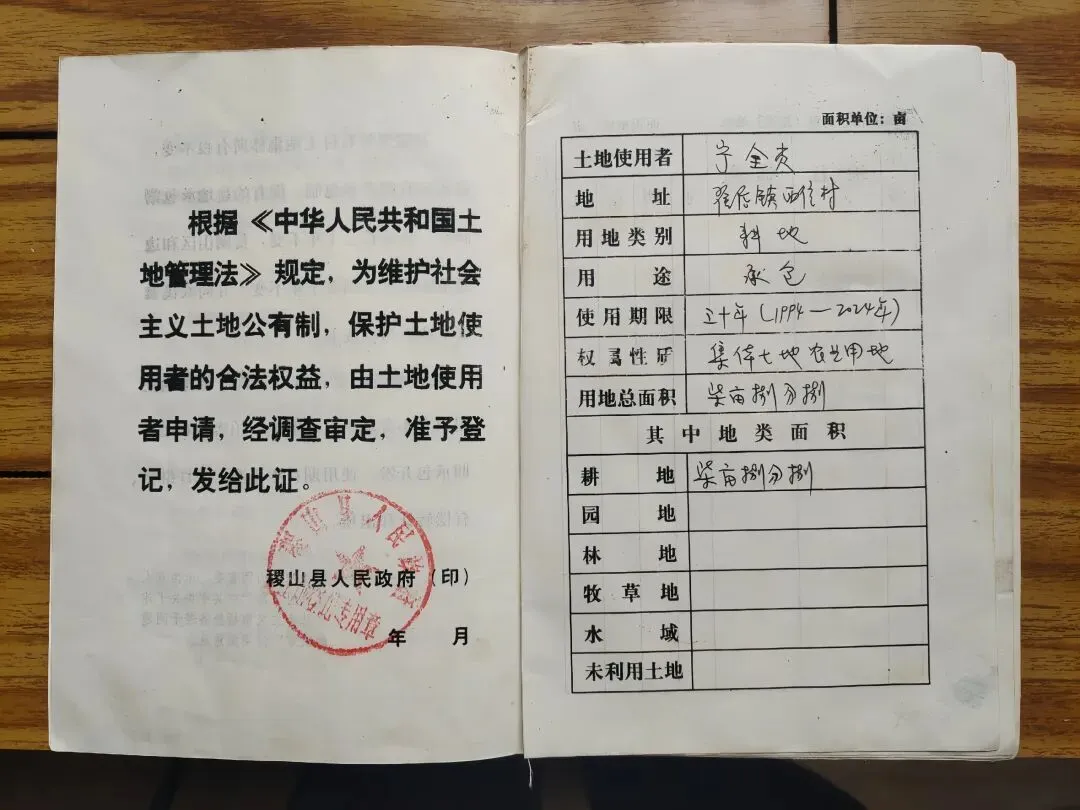 根据《中华人民共和国土
地管理法》规定，为维护社会
主义土地公有制，保护土地使
用者的合法权益，由土地使用
者申请，经调查审定，准予登
记，发给此证。
稷山县人民政府（印）
年 月
面积单位：亩
土地使用者 宁全贵
地 址 翟店镇西位村
用地类别 耕地
用 途 承包
使用期限 三十年（1994—2024年）
权属性质 集体土地农业用地
用地总面积 柒亩捌分捌
其中地类面积
耕 地 柒亩捌分捌
园 地
林 地
牧草地
水 域
未利用土地